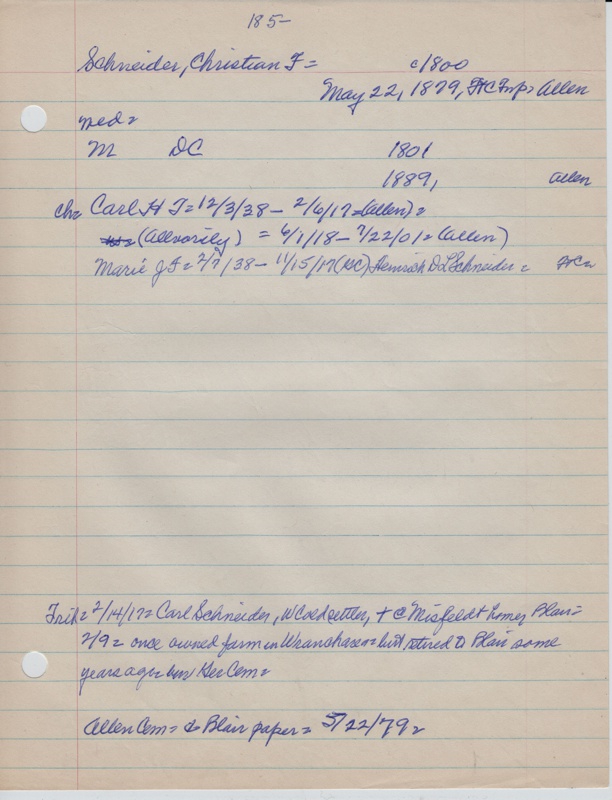 185-
Schneider, Christian F = c1800
May 22, 1879, FtC Twp = Allen
med=
M DC 1801
1889, Allen
ch= Carl H F = 12/3/38 - 2/6/17 = (Allen) =
= 6/1/18 - 7/22/01 = (Allen)
Marie J F = 2/7/38 - 11/15/17 (DC) Heinrich D L Schneider = FtC=
Trib = 2/14/17 = Carl Schneider, W Co old settler, + C Misfeldt home, Blair =
2/9 = once owned farm in but retired to Blair some
years ago = bur Ger Cem =
Allen Cem = & Blair paper = 5/22/79 =